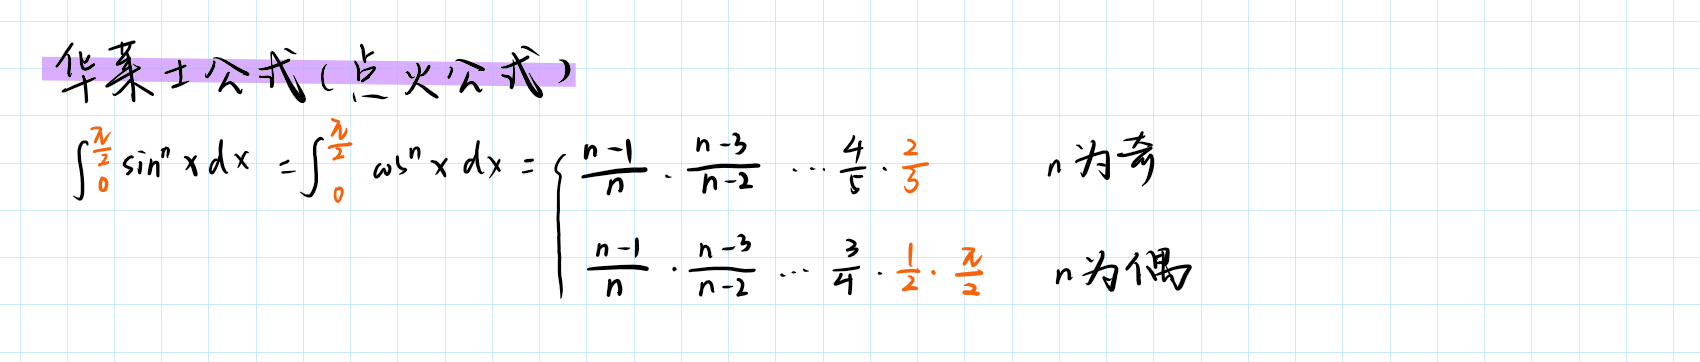 华莱士公式(点火公式)
∫₀^{π/2} sinⁿ x dx = ∫₀^{π/2} cosⁿ x dx = { (n-1)/n · (n-3)/(n-2) ··· 4/5 · 2/3 n为奇
(n-1)/n · (n-3)/(n-2) ··· 3/4 · 1/2 · π/2 n为偶